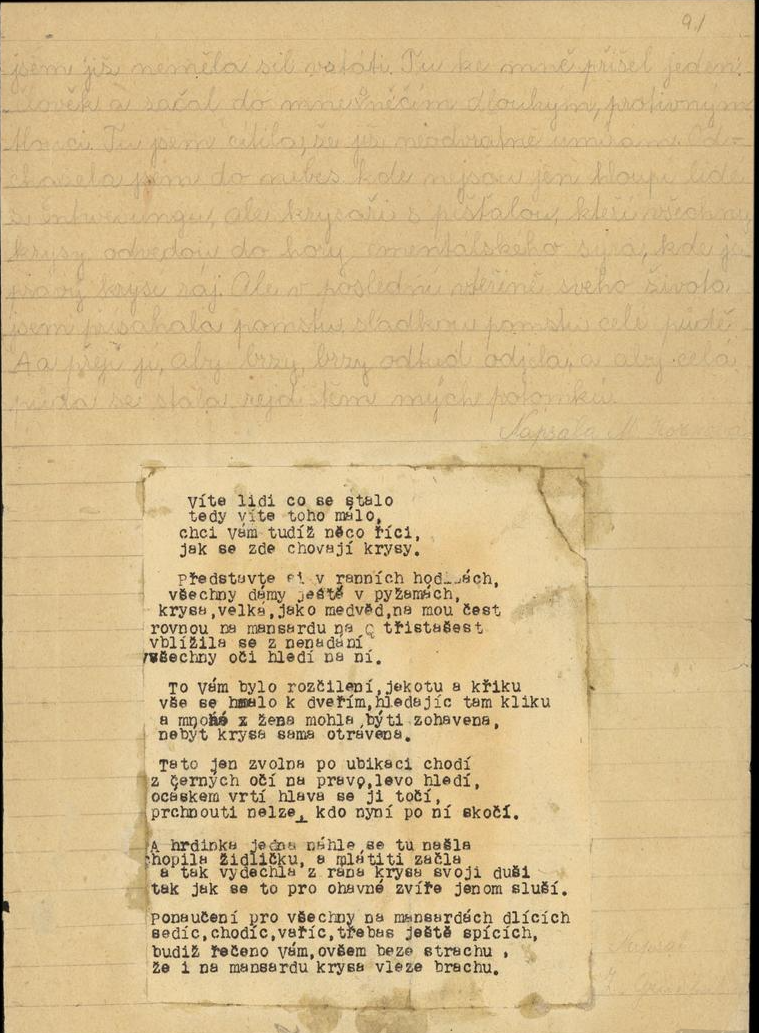 9./
jsem již neměla sil vstáti. Tu ke mně přišel jeden
člověk a začal do mne něčím dlouhým, protivným
tlouci. Tu jsem cítila, že již neodvratně umírám. Od-
cházela jsem do nebes kde nejsou jen hloupí lidé
z Entwesungu, ale krysaři s píšťalou, kteří všechny
krysy odvedou do hory ementálského syra, kde je
pravý krysí ráj. Ale v poslední vteřině svého života
jsem přísahala pomstu, sladkou pomstu celé půdě.
A a přeji jí, aby brzy, brzy odtud odjela, a aby celá
půda se stala rejdištěm mých potomků.
Napsala M.
Víte lidi co se stalo
tedy víte toho málo,
chci Vám tudíž něco říci,
jak se zde chovají krysy.
Představte si v ranních hodinách,
všechny dámy ještě v pyžamách,
krysa,velká,jako medvěd,na mou čest
rovnou na mansardu na č třistašest
vblížila se z nenadání
všechny oči hledí na ní.
To Vám bylo rozčilení,jekotu a křiku
vše se hnalo k dveřím,hledajíc tam kliku
a mnohá x žena mohla býti zohavena,
nebýt krysa sama otrávena.
Tato jen zvolna po ubikaci chodí
z černých očí na pravo,levo hledí,
ocáskem vrtí hlava se jí točí,
prchnouti nelze, kdo nyní po ní skočí.
A hrdinka jedna náhle se tu našla
chopila židličku, a mlátiti začla
a tak vydechla z rána krysa svoji duši
tak jak se to pro ohavné zvíře jenom sluší.
Ponaučení pro všechny na mansardách dlících
sedíc,chodíc,vaříc,třebas ještě spících,
budiž řečeno Vám,ovšem beze strachu,
že i na mansardu krysa vleze brachu.